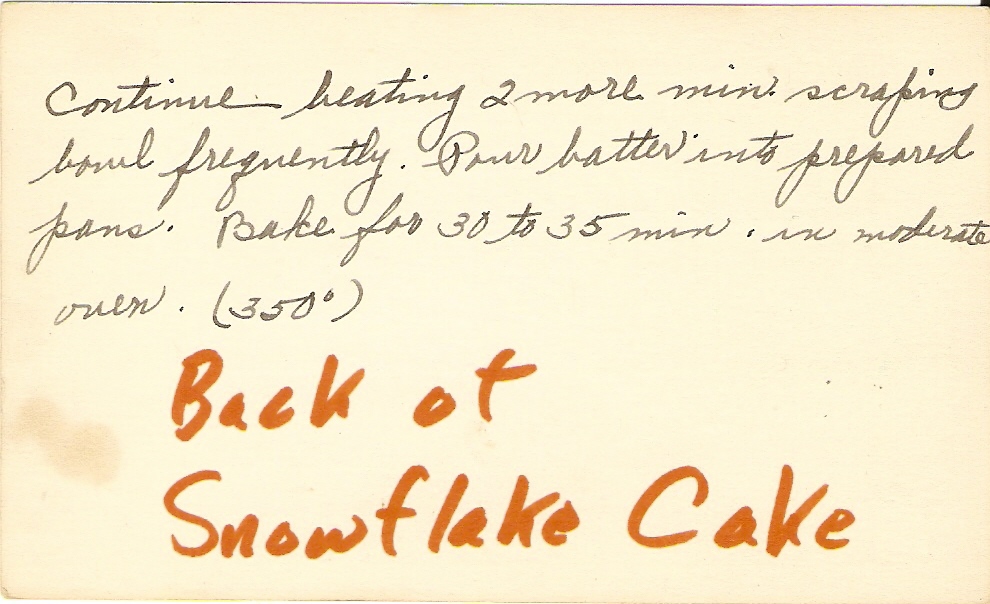 Continue beating 2 more min. scraping
bowl frequently. Pour batter into prepared
pans. Bake for 30 to 35 min. in moderate
oven. (350°)
Back of
Snowflake Cake